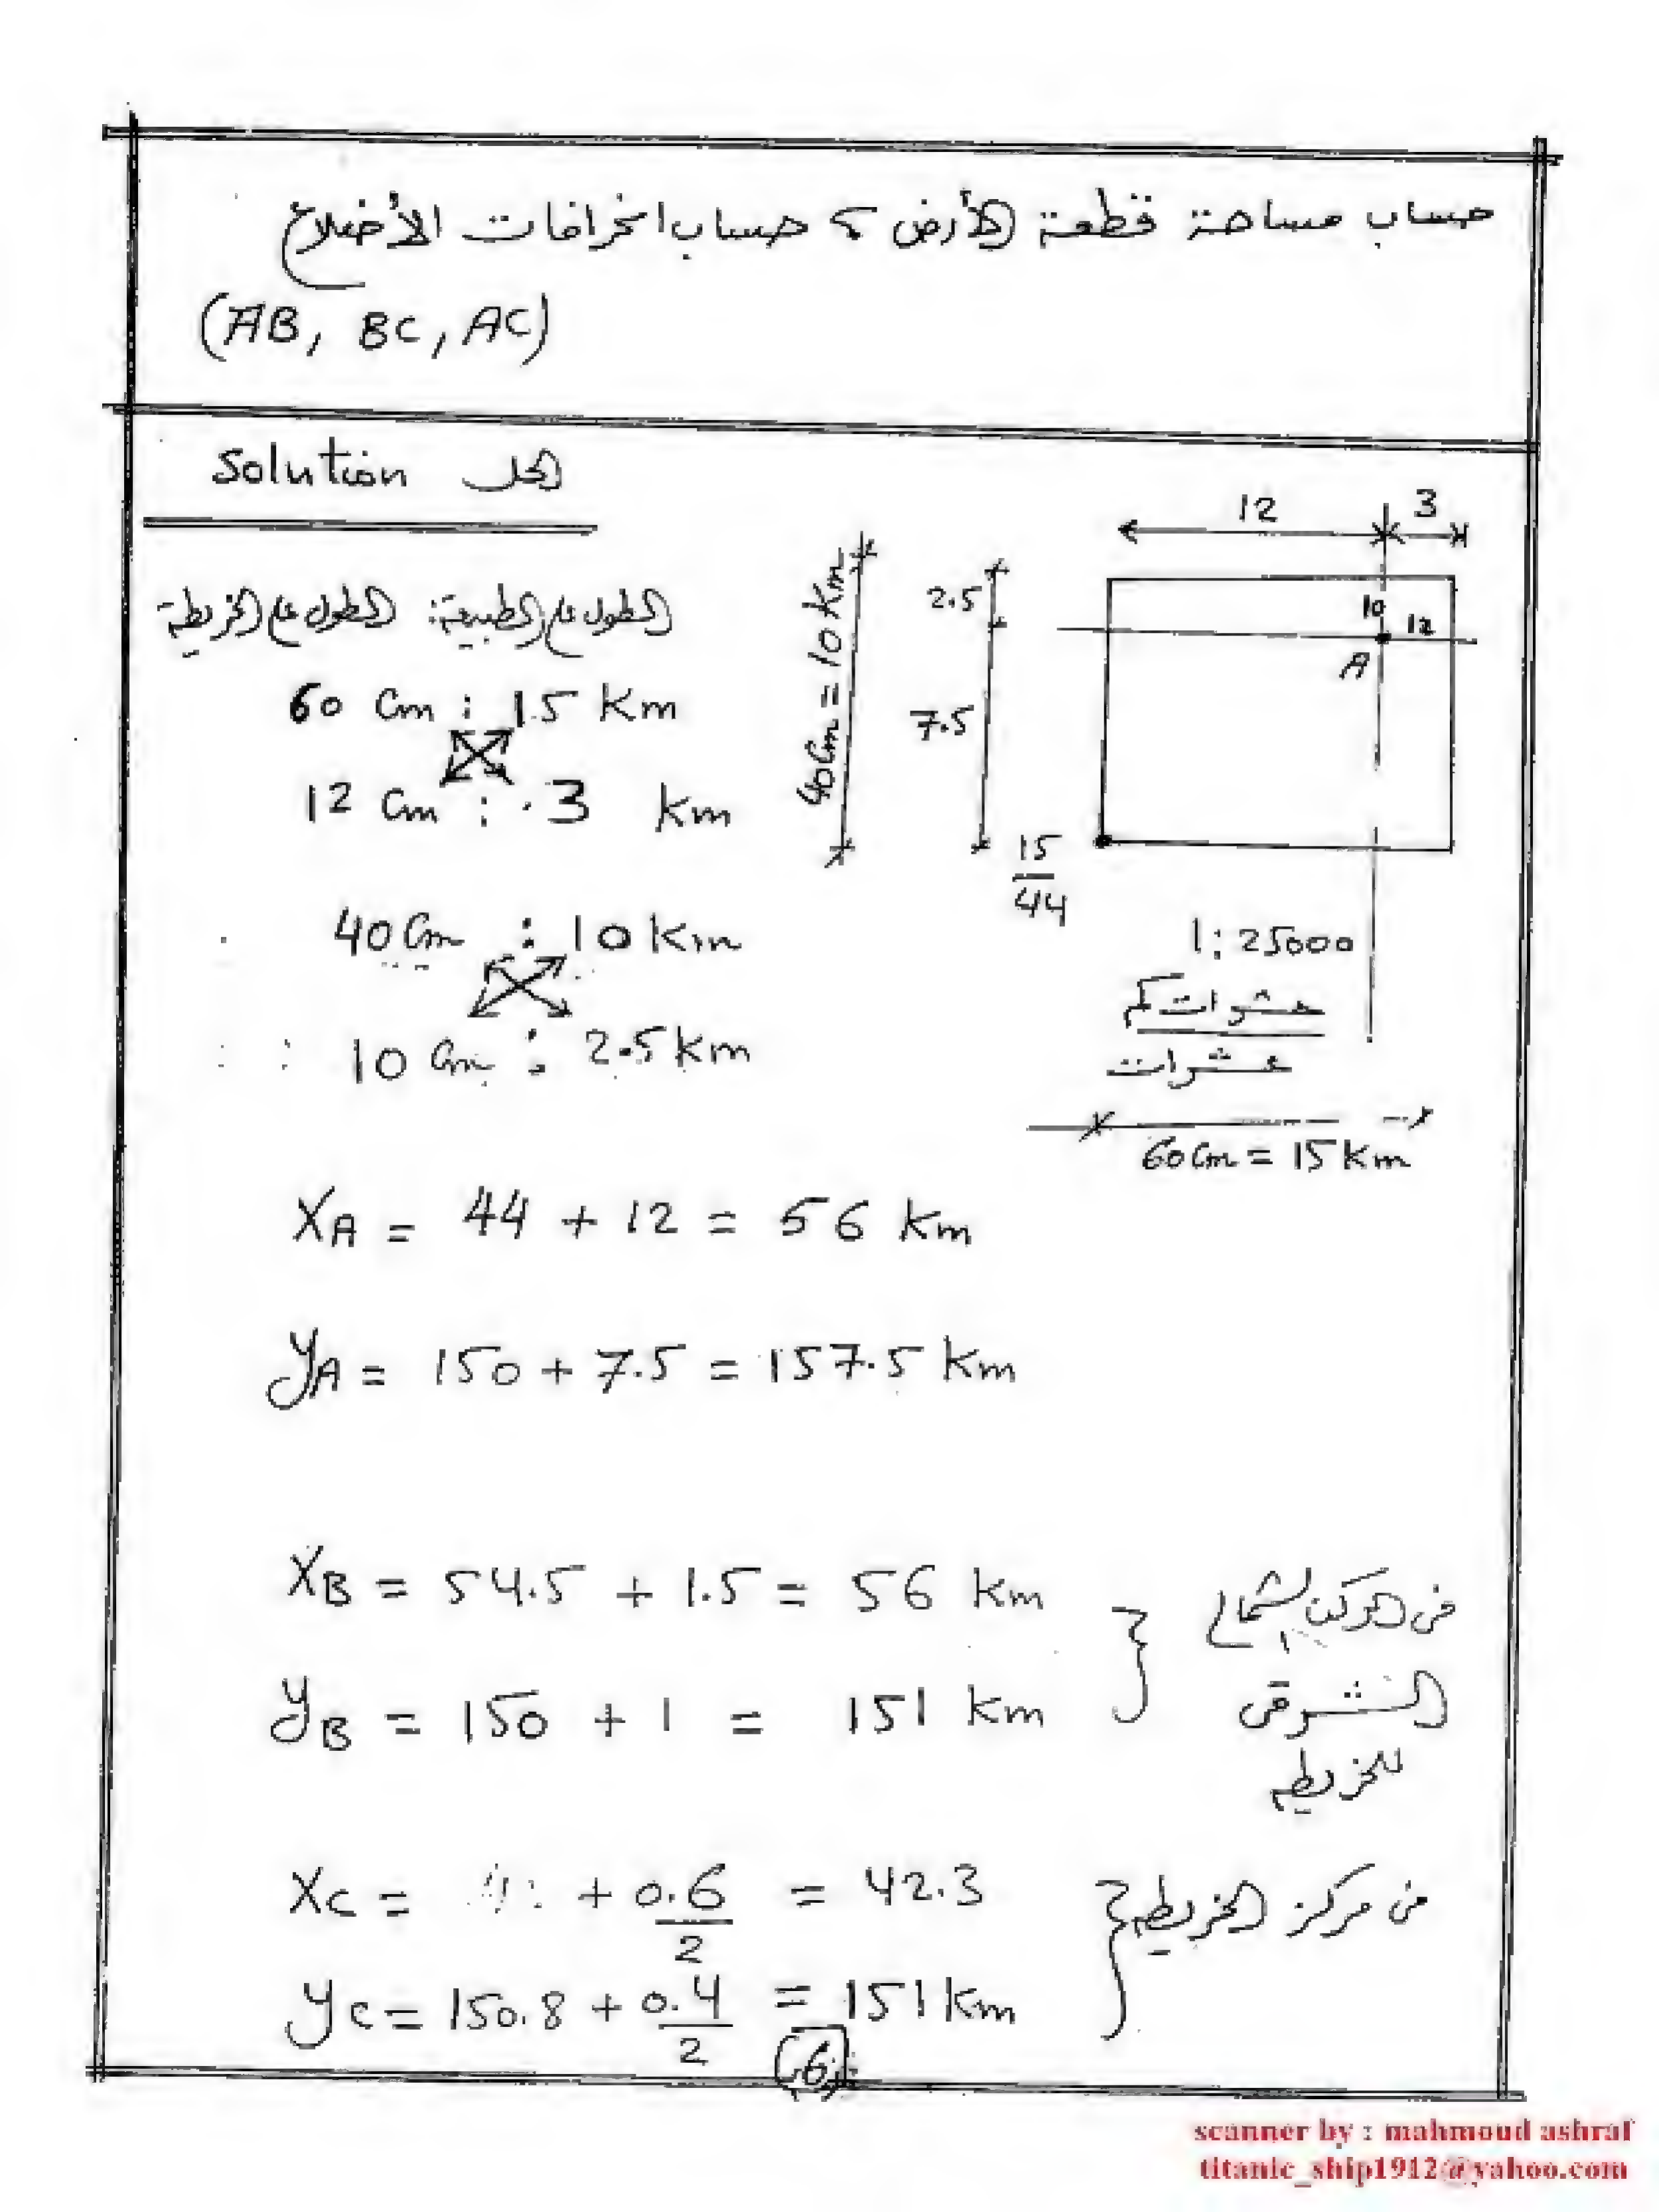 حساب مساحة قطعة الأرض ، حساب انحرافات الأضلاع
(AB, BC, AC)
Solution الحل
12 3
الطول على الطبيعة : الطول على الخريطة
40 Cm = 10 Km
2.5
10 12
A
60 Cm : 15 Km
7.5
12 Cm : 3 Km
15
44
40 Cm : 10 Km
1 : 25000
عشرات كم
عشرات
10 Cm : 2.5 Km
60 Cm = 15 Km
XA = 44 + 12 = 56 Km
yA = 150 + 7.5 = 157.5 Km
XB = 54.5 + 1.5 = 56 Km
yB = 150 + 1 = 151 Km
الشرقى
للخريطه
Xc = + 0.6/2 = 42.3
yc = 150.8 + 0.4/2 = 151 Km
فى مركز الخريطه
6
scanner by : mahmoud ashraf
titanic_ship1912@yahoo.com